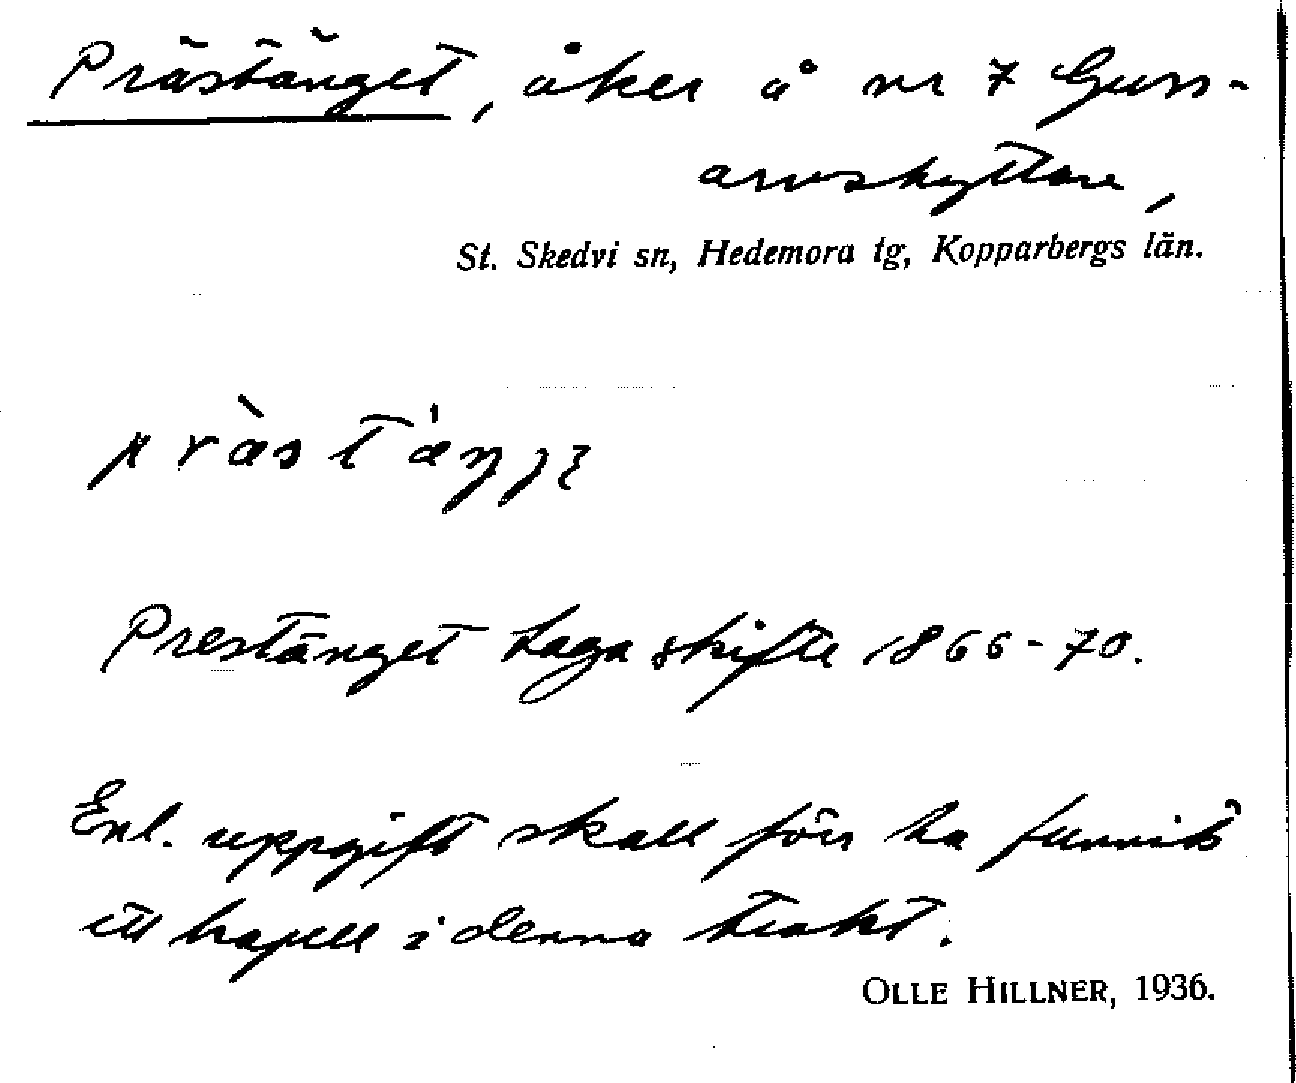 Prästänget, åker å nr 7 Guss-
arvshyttan,
St. Skedvi sn, Hedemora tg, Kopparbergs län.
Prestänget Laga skifte 1866-70.
Enl. uppgift skall förr ha funnits
ett kapell i denna trakt.
OLLE HILLNER, 1936.